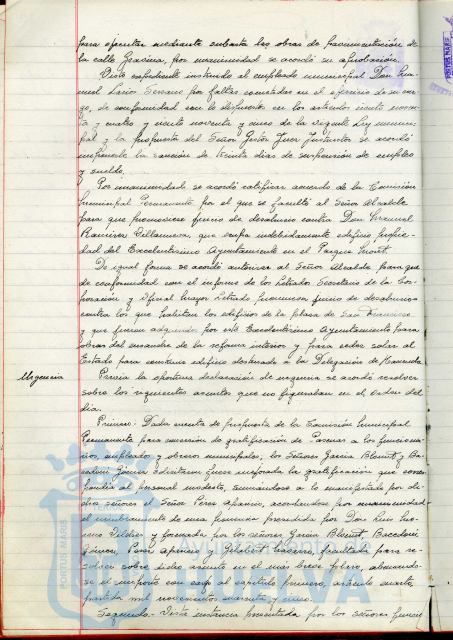 para ejecutar mediante subasta las obras de pavimentación de
la calle Gravina, por unanimidad se acordó su aprobación.
Visto expediente instruido al empleado municipal Don Ma-
nuel Serrano por faltas cometidas en el ejercicio de su car-
go, de conformidad con lo dispuesto en los artículos ciento noven-
ta y cuatro y ciento noventa y cinco de la vigente Ley munici-
pal y la propuesta del Señor Gestor Juez Instructor se acordó
imponerle la sanción de treinta días de suspensión de empleo
y sueldo.
Por unanimidad se acordó ratificar acuerdo de la Comisión
Municipal Permanente por el que se facultó al Señor Alcalde
para que promoviese juicio de desahucio contra Don Manuel
Ramírez Villanueva, que ocupa indebidamente edificio propie-
dad del Excelentísimo Ayuntamiento en el Parque
De igual forma se acordó autorizar al Señor Alcalde para que
de conformidad con el informe de los Letrados Secretario de la Cor-
poración y Oficial Mayor Letrado promueva juicio de desahucio
contra los que habitan los edificios de la plaza de San Francisco
y que fueron adquiridos por este Excelentísimo Ayuntamiento para
obras del ensanche de la reforma interior y para ceder solar al
Estado para construir edificio destinado a la Delegación de Hacienda.
Urgencia
Previa la oportuna declaración de urgencia se acordó resolver
sobre los siguientes asuntos que no figuraban en el Orden del
día.
Primero: Dada cuenta de propuesta de la Comisión Municipal
Permanente para concesión de gratificación de Pascuas a los funciona-
rios, empleados y obreros municipales, los Señores García y
Gómez solicitaron fuese mejorada la gratificación que corres-
pondía al personal modesto, sumándose a lo manifestado por di-
chos señores el Señor Pérez Aparicio, acordándose por unanimidad
el nombramiento de una ponencia presidida por Don Luis
y formada por los señores García
Gómez, Pérez Aparicio y Gilabert facultada para re-
solver sobre dicho asunto en el más breve plazo, abonando-
se el importe con cargo al capítulo primero, artículo cuarto,
partida mil novecientos cuarenta y cinco.
Segundo. Vista instancia presentada por los señores
PORTUS MARIS